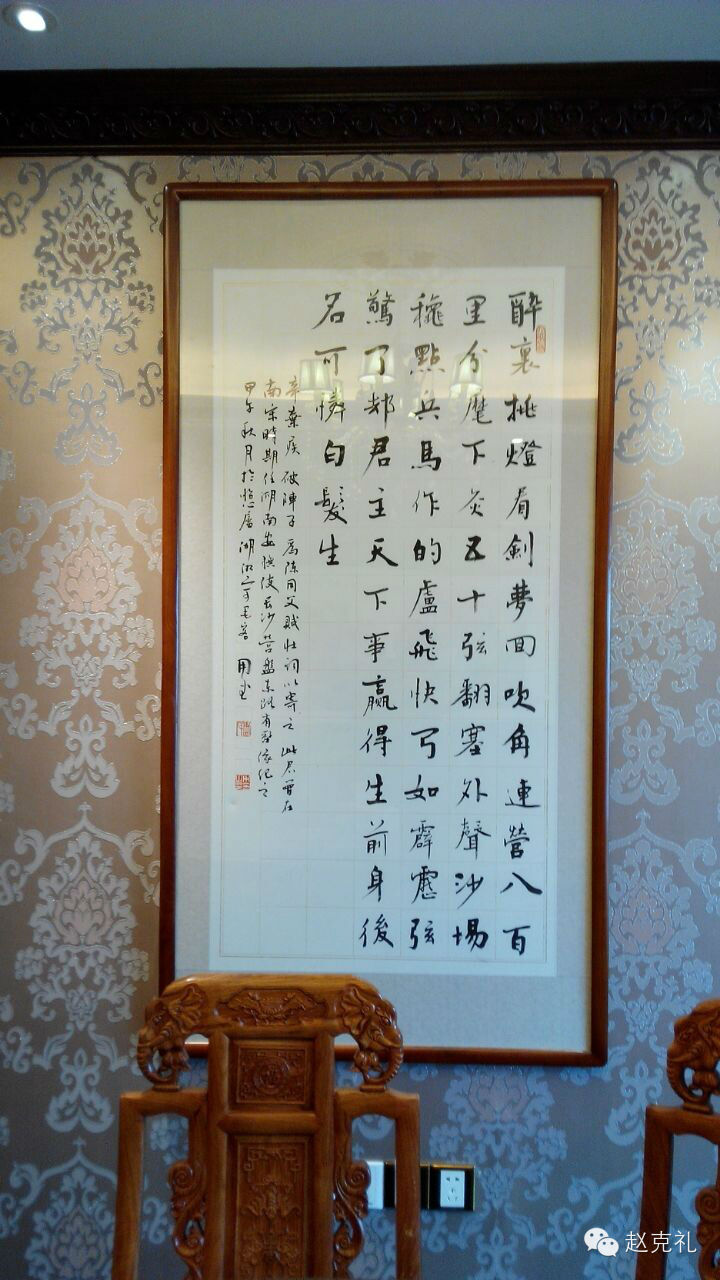 醉裏挑燈看劍夢回吹角連營八百
里分麾下炙五十弦翻塞外聲沙場
穐點兵馬作的盧飛快弓如霹靂弦
驚了却君王天下事贏得生前身後
名可憐白髮生
辛棄疾 破陣子 為陳同父賦壯詞以寄之 此君曾在
南宋時期任湖南安撫使長沙營盤路有像紀之
甲午秋月於居 湖湘客
赵克礼